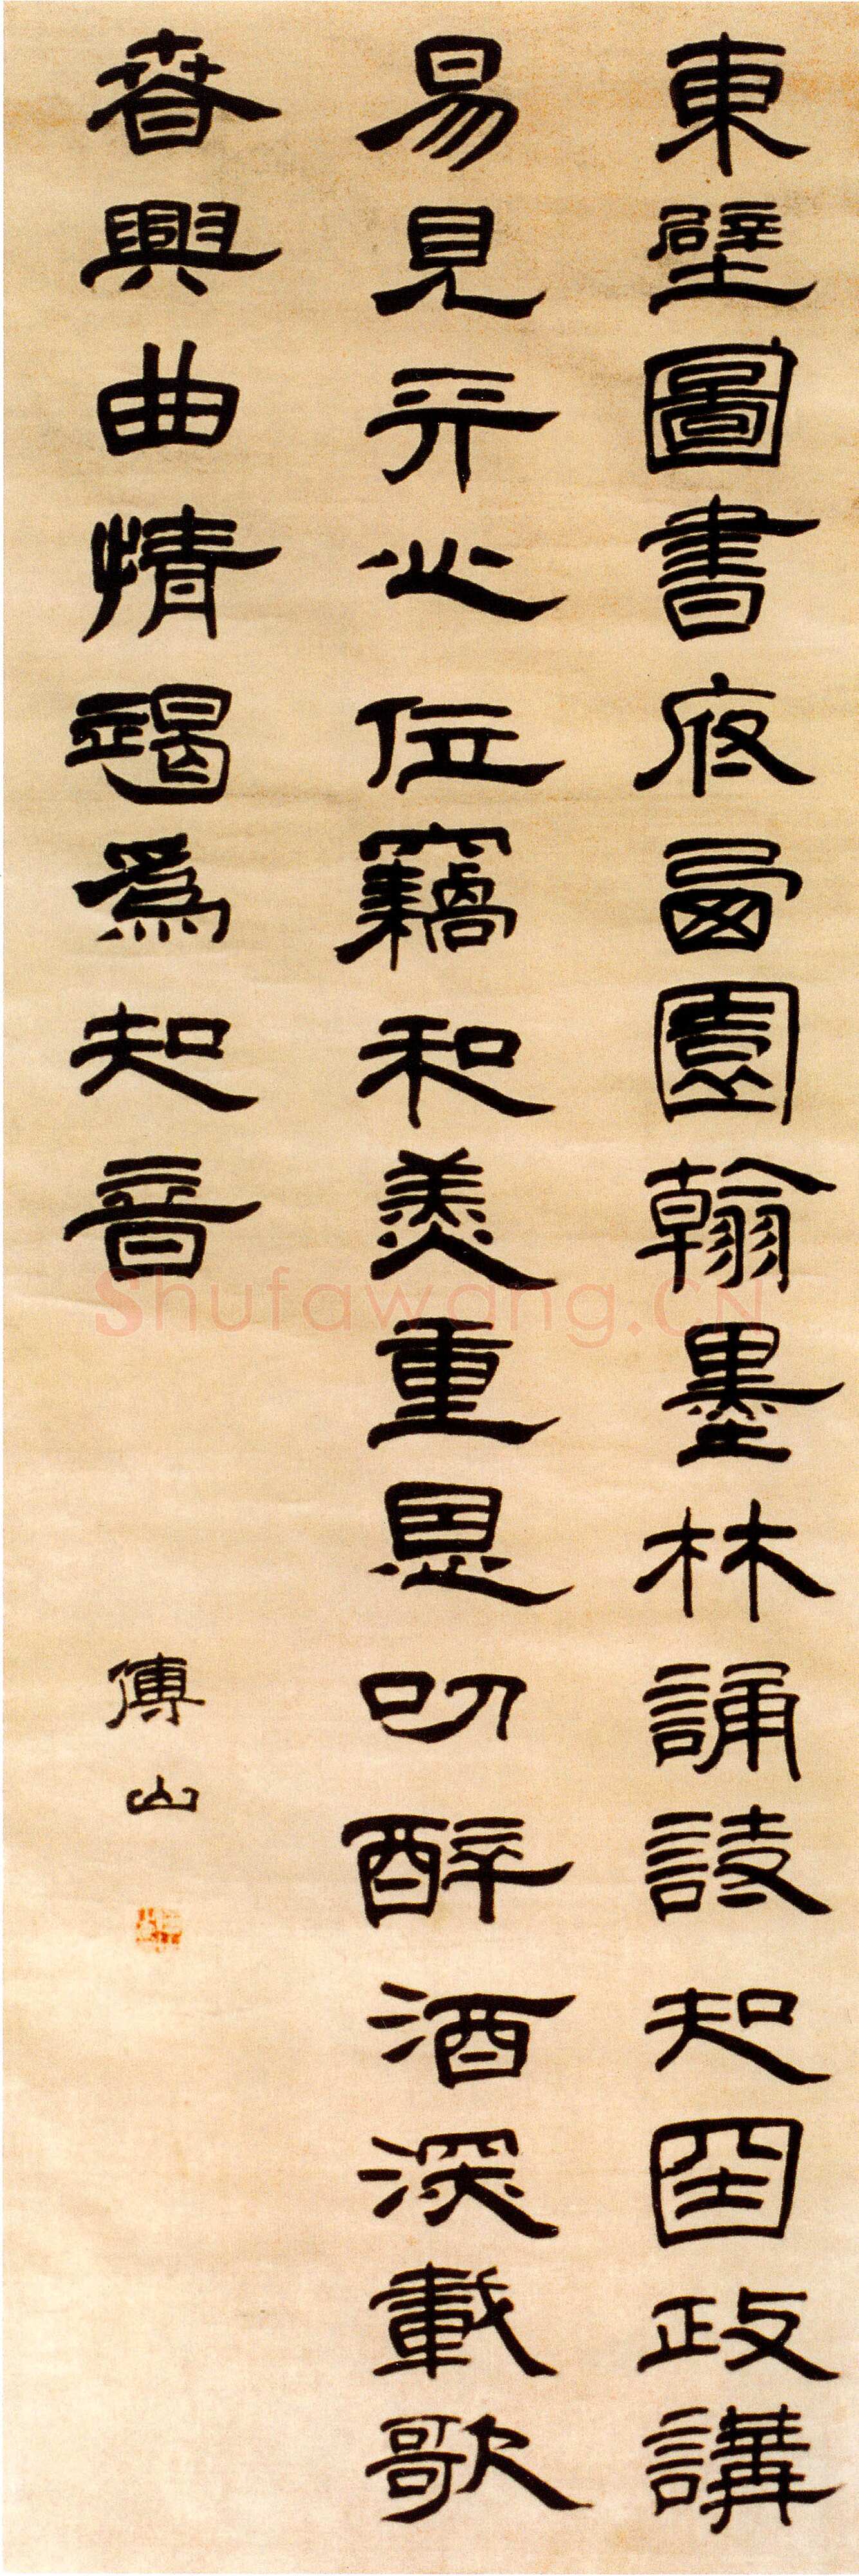 東壁圖書府西園翰墨林誦詩知國政講
易見天心位竊和羹重恩叨醉酒深載歌
春興曲情竭爲知音
傅山
Shufawang.CN